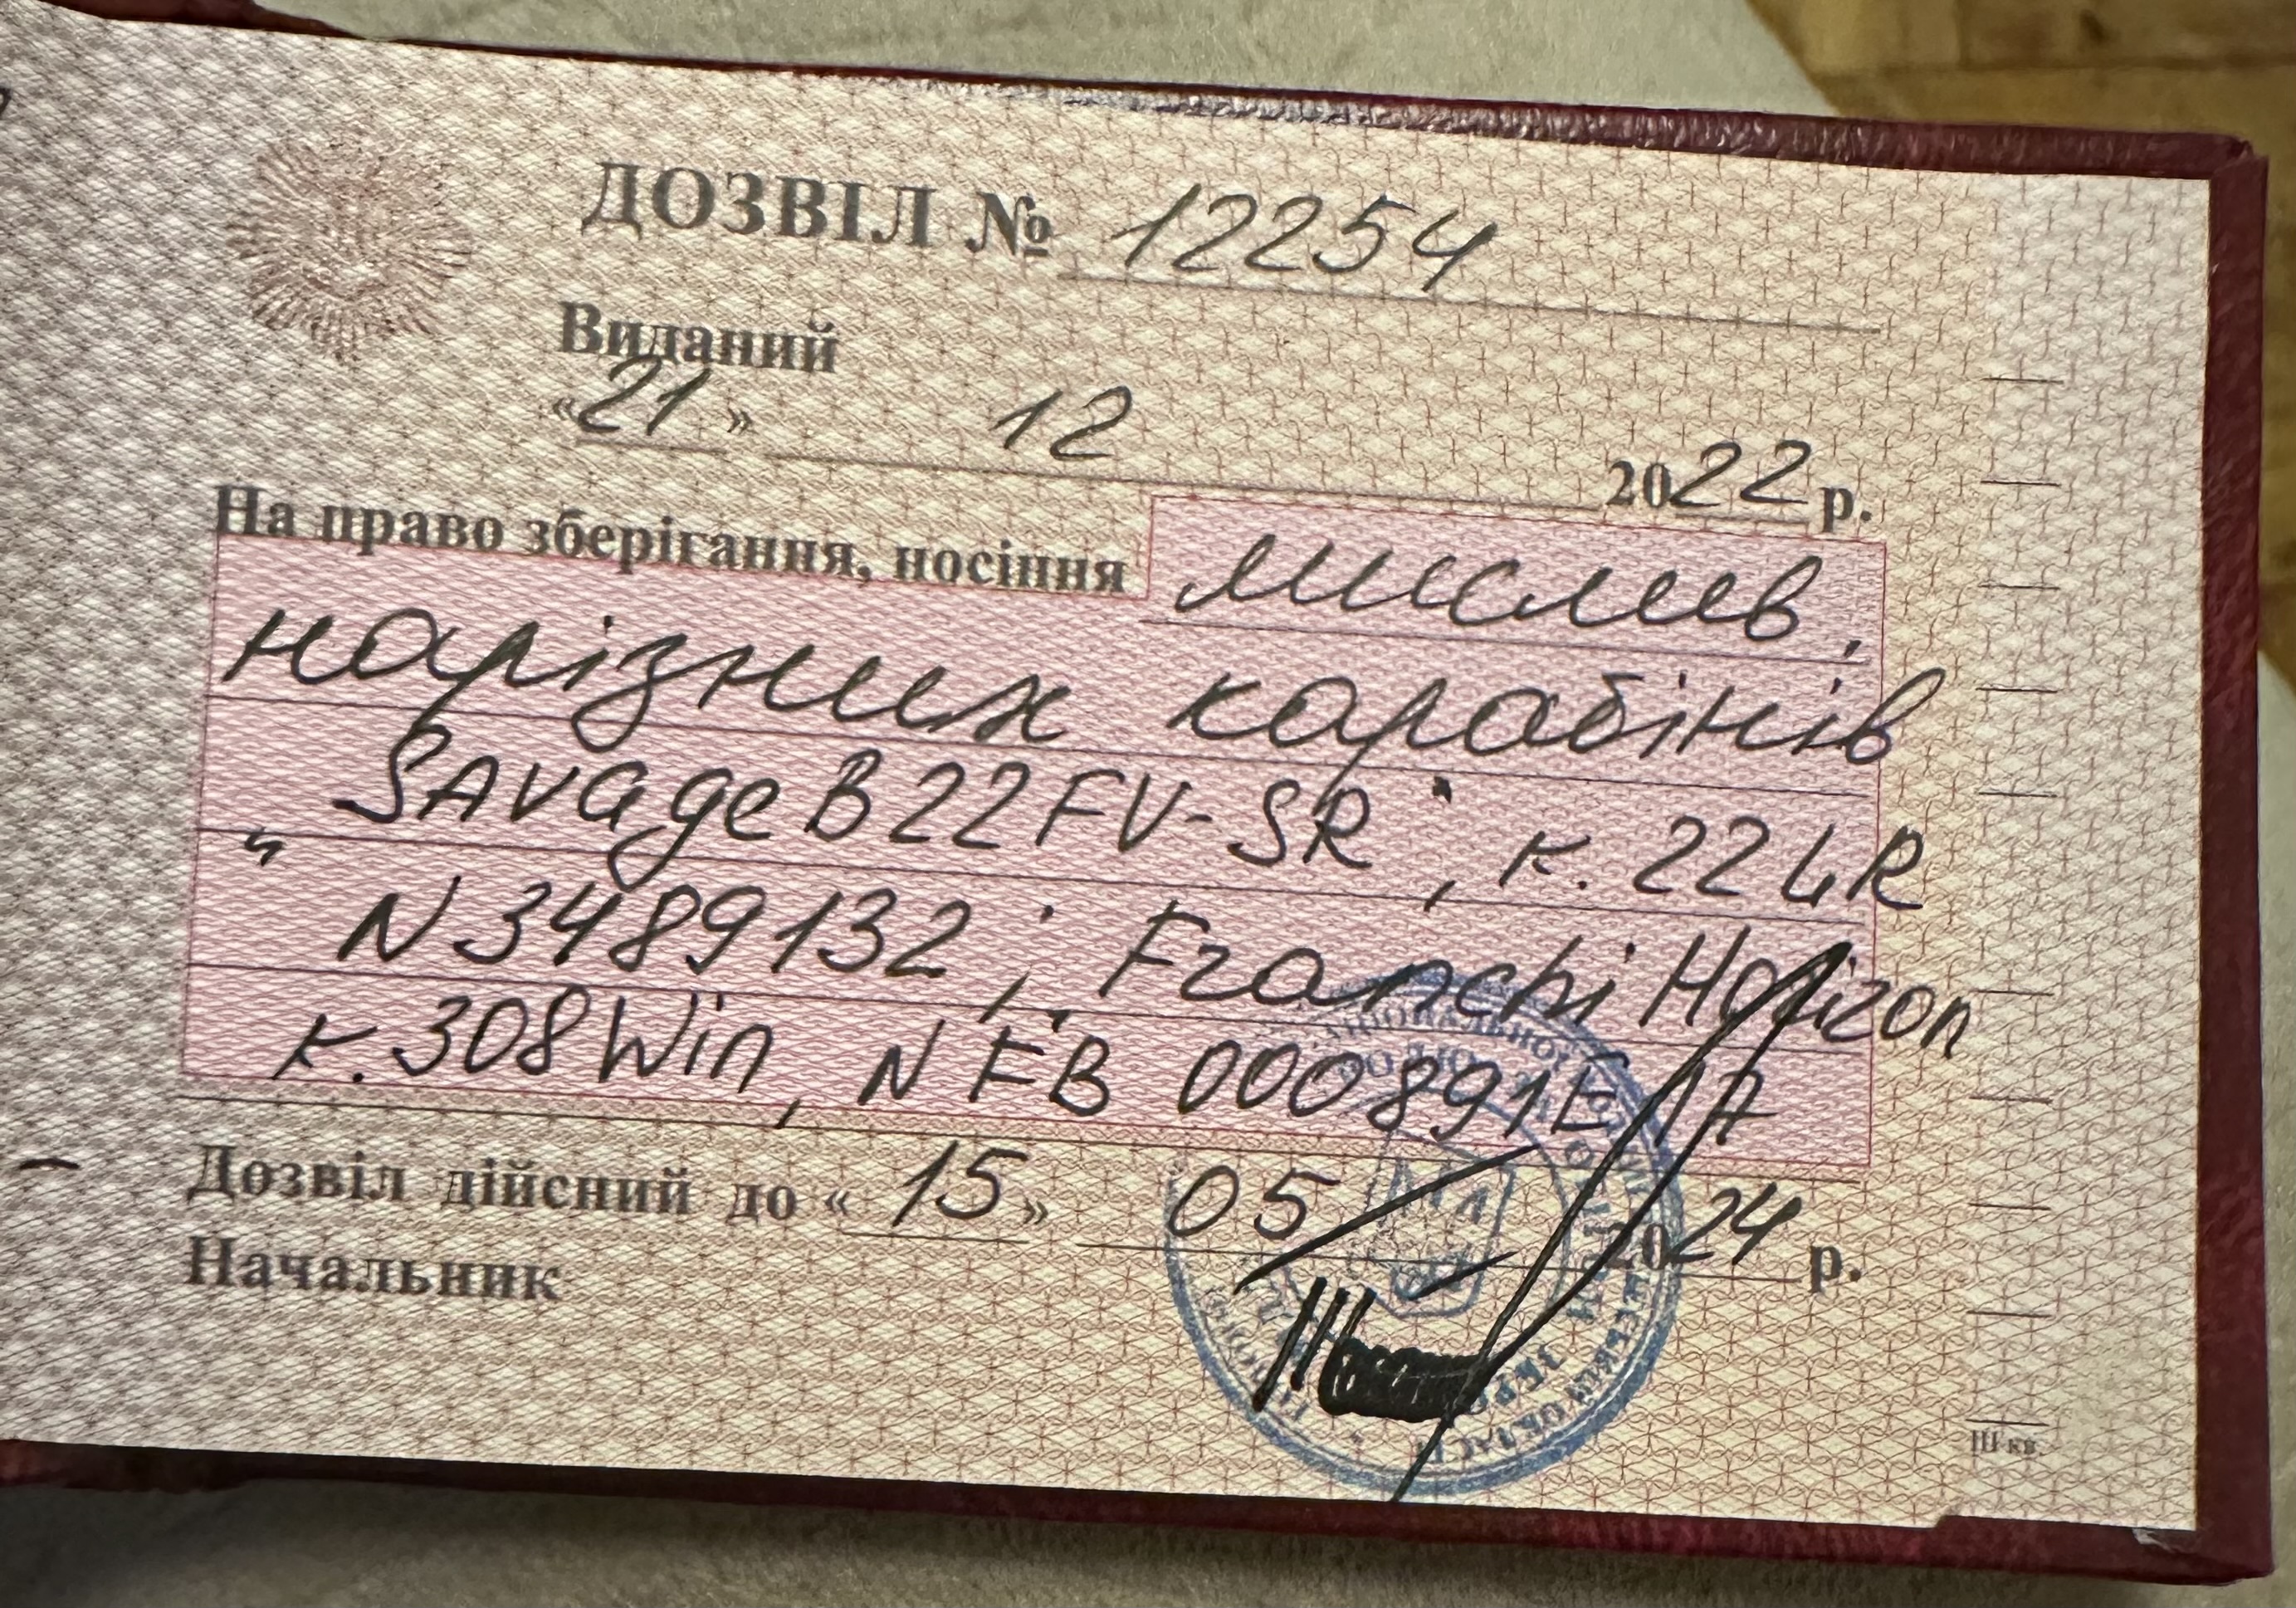 ДОЗВІЛ № 12254
Виданий
«21» 12 2022 р.
На право зберігання, носіння мислив.
нарізних карабінів
"Savage B22 FV-SR", к. 22 LR
N 3489132; Franchi Horizon
к. 308 Win, N FB 000891E 17
Дозвіл дійсний до «15» 05 2024 р.
Начальник
III кв